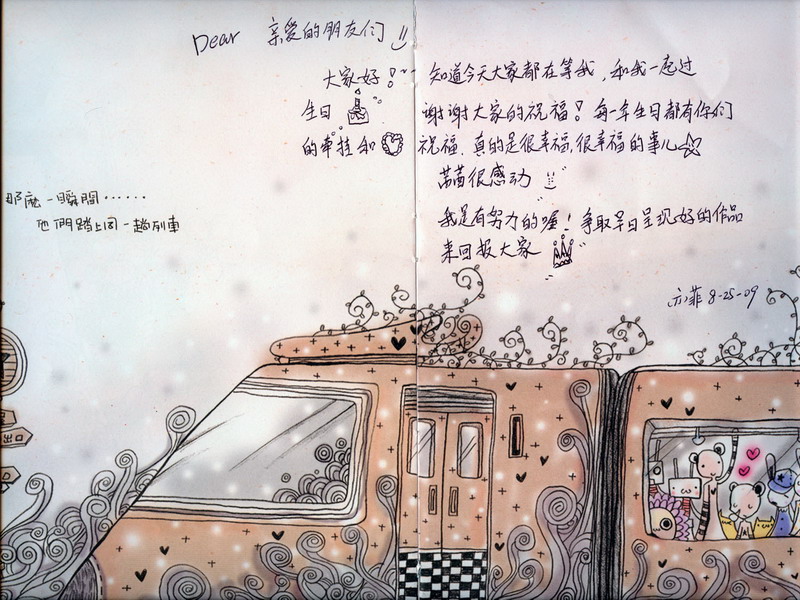 Dear 亲爱的朋友们
大家好！~~ 知道今天大家都在等我，和我一起过
生日 谢谢大家的祝福！每一年生日都有你们
的牵挂和 祝福，真的是很幸福，很幸福的事儿
茜茜很感动
我是有努力的喔！争取早日呈现好的作品
来回报大家
亦菲 8-25-09
那麼一瞬間······
他們踏上同一趟列車
出口